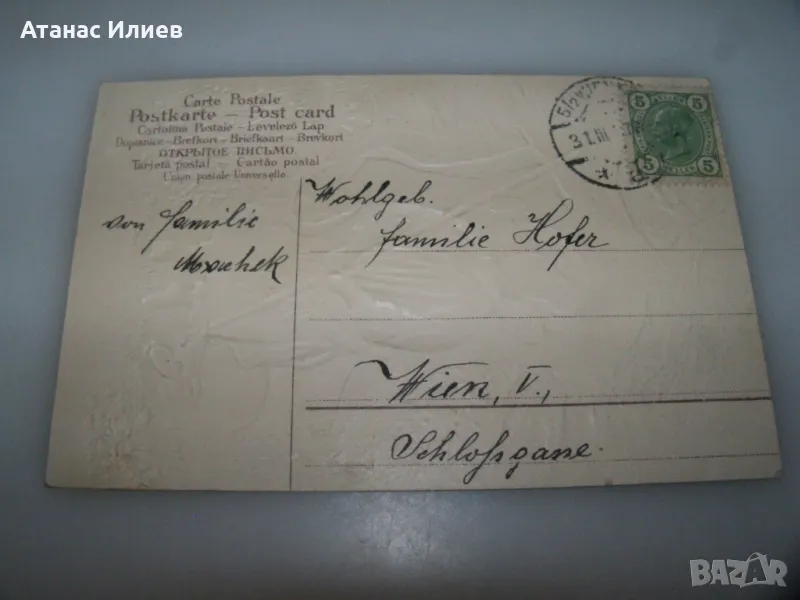 Атанас Илиев
Carte Postale
Postkarte – Post card
Cartolina Postale – Levelező Lap
Dopisnice – Brefkort – Briefkaart – Brevkort
ОТКРЫТОЕ ПИСЬМО.
Tarjeta postal – Cartão postal
Union postale Universelle.
von Familie
Wohlgeb.
Familie Hofer
Wien, V.,
Schloßgasse.
5 5
5 5
31. III
BAZAR